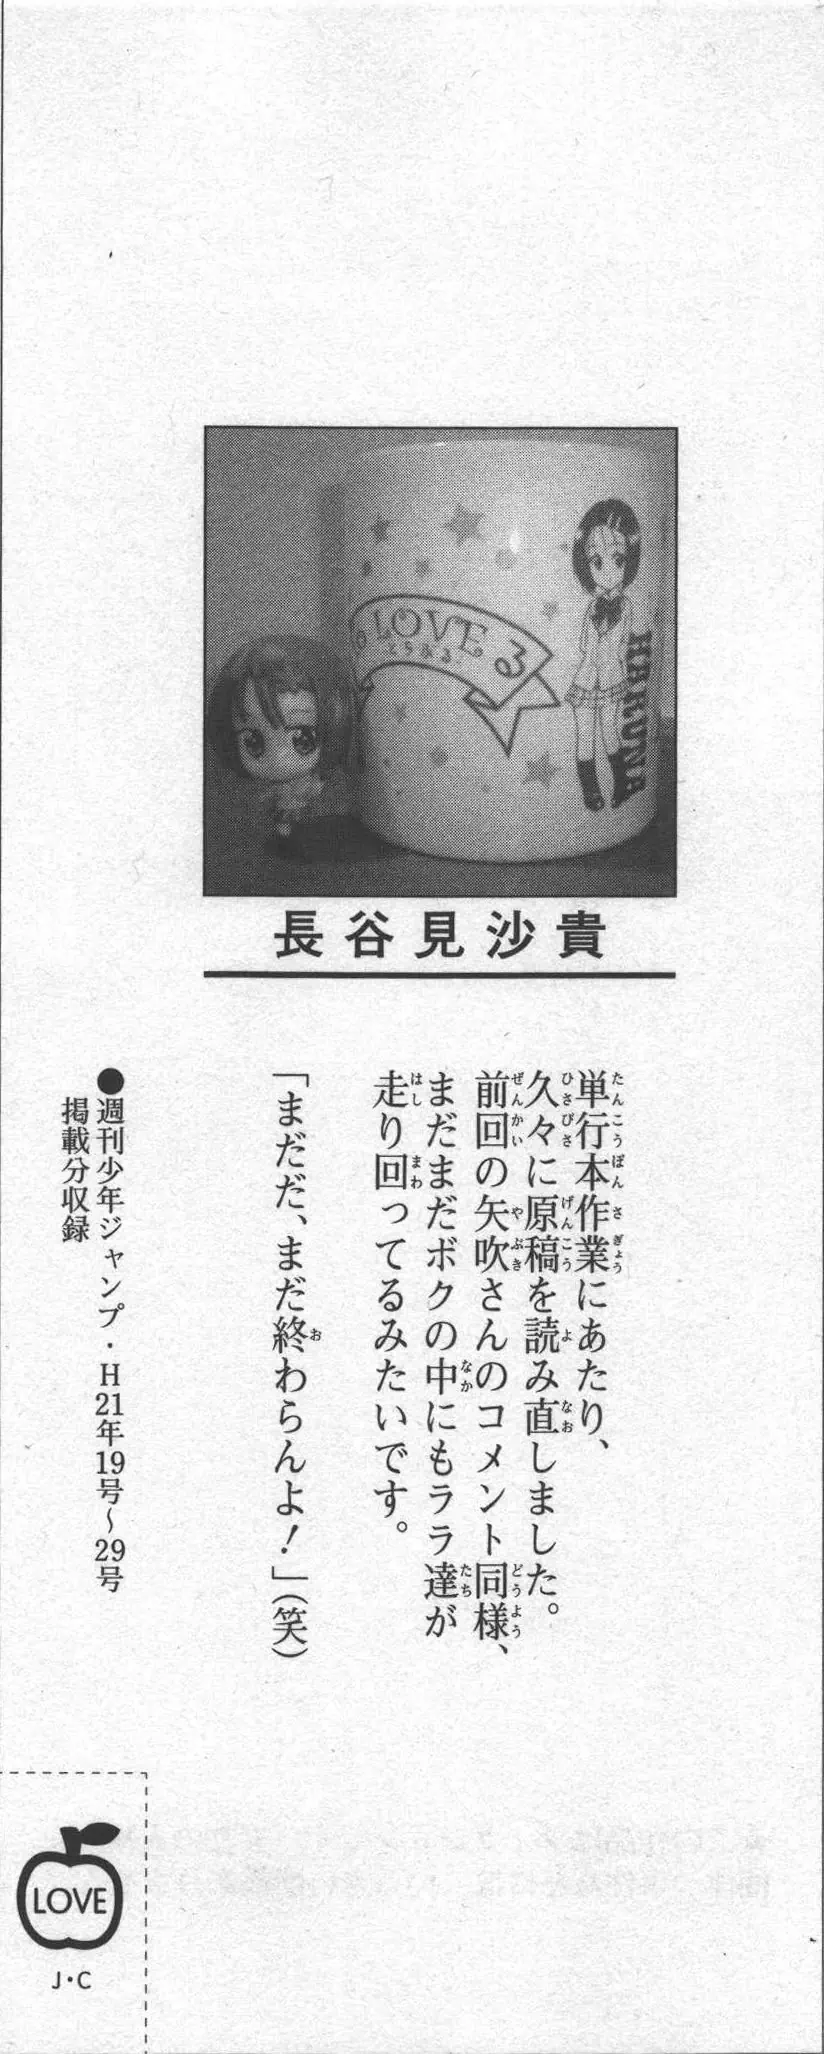 LOVE る
とらぶる
HARUNA
長谷見沙貴
単行本作業にあたり、
久々に原稿を読み直しました。
前回の矢吹さんのコメント同様、
まだまだボクの中にもララ達が
走り回ってるみたいです。
「まだだ、まだ終わらんよ！」(笑)
●週刊少年ジャンプ・H21年19号～29号
掲載分収録
LOVE
J・C